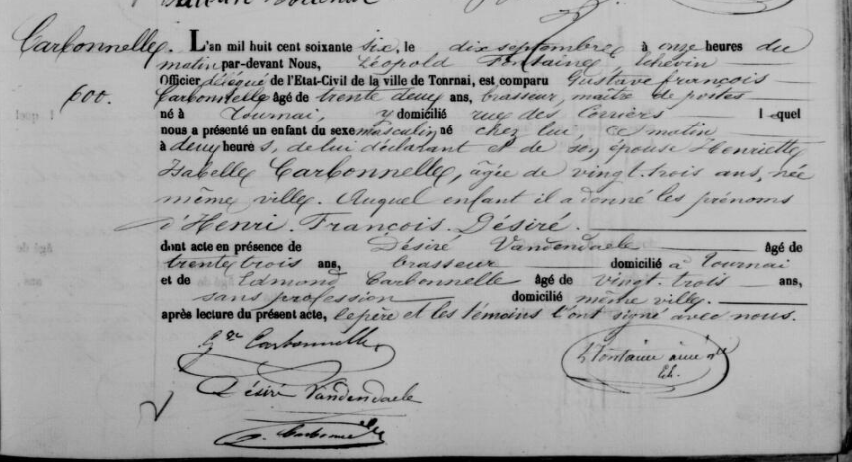 Carbonnelle. L'an mil huit cent soixante six, le dix septembre à onze heures du
matin par-devant Nous, Léopold Fontaine, échevin
Officier délégué de l'Etat-Civil de la ville de Tournai, est comparu Gustave François
600. Carbonnelle âgé de trente deux ans, brasseur, maître de postes
né à Tournai, y domicilié rue des Corriers lequel
nous a présenté un enfant du sexe masculin, né chez lui, ce matin
à deux heures, de lui déclarant et de son épouse Henriette
Isabelle Carbonnelle, âgée de vingt-trois ans, née
même ville. Auquel enfant il a donné les prénoms
d'Henri-François-Désiré.
dont acte en présence de Désiré Vandendaele âgé de
trente trois ans, brasseur domicilié à Tournai
et de Edmond Carbonnelle âgé de vingt-trois ans,
sans profession domicilié même ville.
après lecture du présent acte, le père et les témoins l'ont signé avec nous.
Carbonnelle
Fontaine
Désiré Vandendaele
Carbonnelle